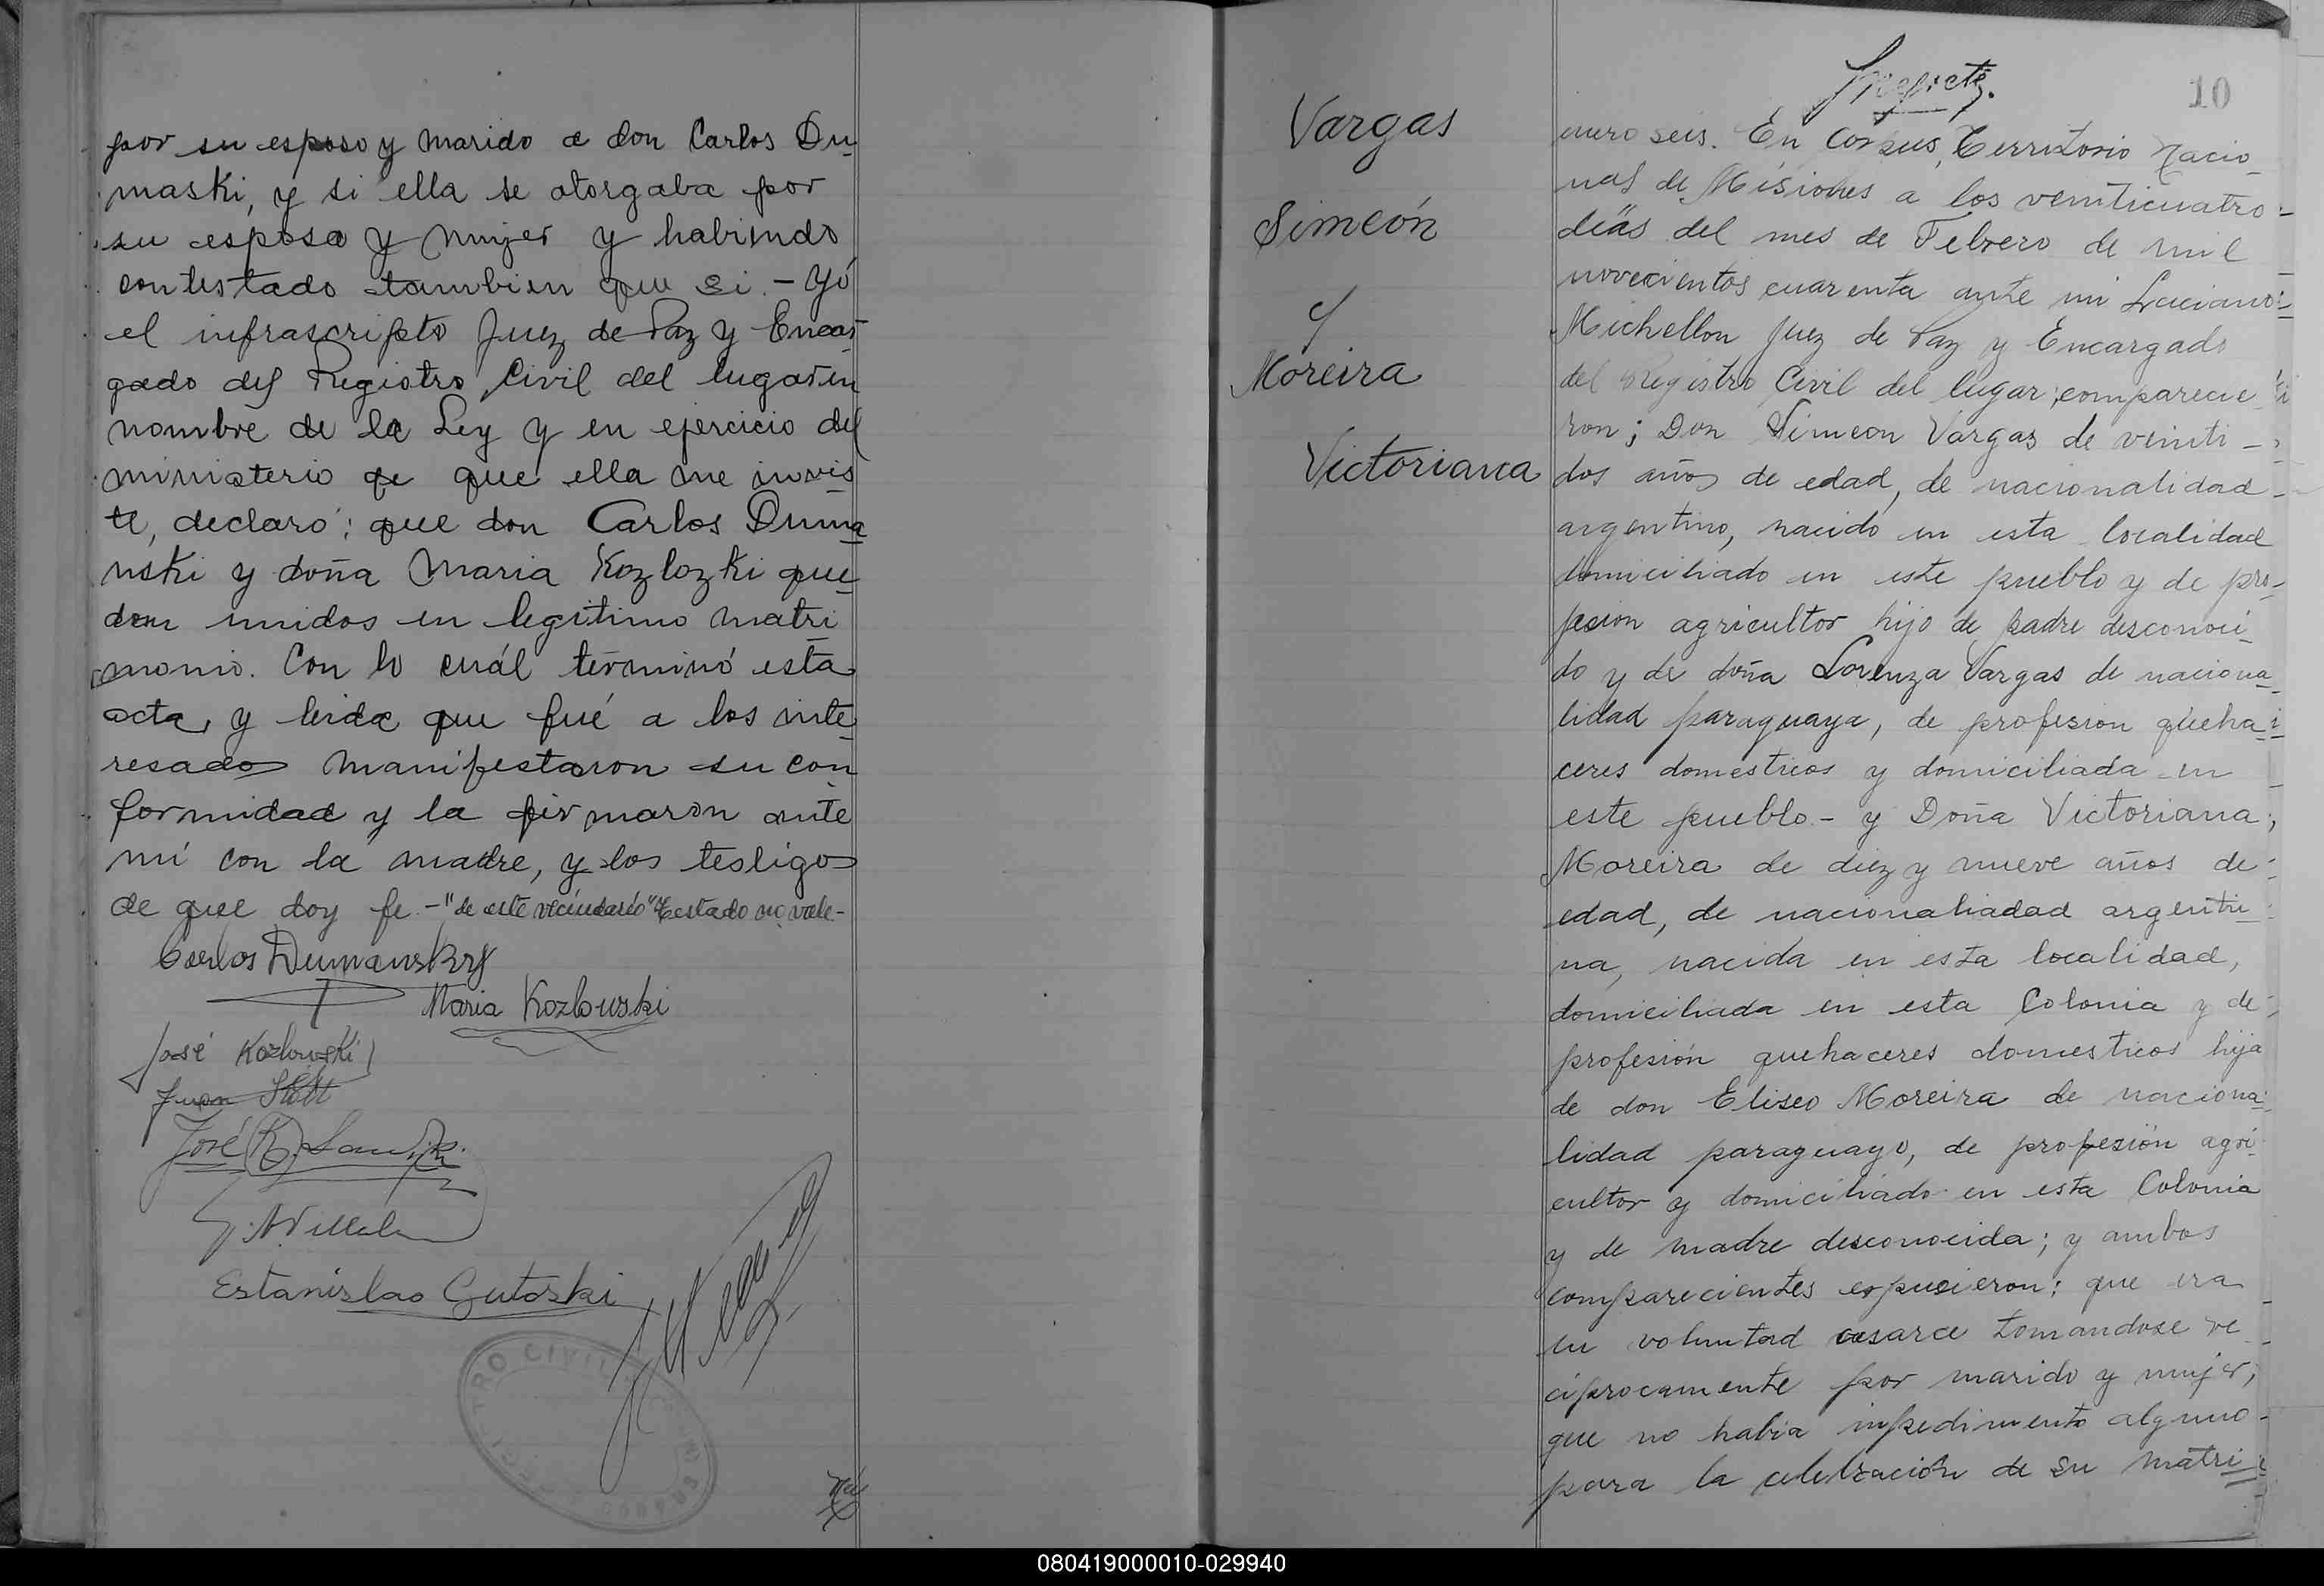 por su esposo y marido a don Carlos Du_
maski, y si ella se otorgaba por
su esposa y mujer y habiendo
contestado tambien que si. - Yó
el infrascripto Juez de Paz y Encar_
gado del Registro Civil del lugar en
nombre de la Ley y en ejercicio del
ministerio qe que ella me invis_
te, declaro: que don Carlos Duma_
nski y doña Maria Kozlozki que_
dan unidos en legitimo matri_
monio. Con lo cuál terminó esta
acta, y leida que fué a los inte_
resados manifestaron su con_
formidad y la firmaron ante
mí con la madre, y los testigos
de que doy fe. - "de este vecindario" Testado no vale-
Carlos Dumansky
Maria Kozlowski
José Kozlowski
Juan
José R.
Estanislao Gutoski
REGISTRO CIVIL
Nú
10
Vargas
Simeón
y
Moreira
Victoriana
mero seis. En Corpus, Territorio Nacio_
nal de Misiones a los veinticuatro
días del mes de Febrero de mil
novecientos cuarenta ante mi Luciano
Michellon Juez de Paz y Encargado
del Registro Civil del lugar; comparecie_
ron; Don Simeon Vargas de veinti_
dos años de edad, de nacionalidad
argentino, nacido en esta localidad
domiciliado en este pueblo y de pro_
fesion agricultor hijo de padre desconoci_
do y de doña Lorenza Vargas de naciona_
lidad paraguaya, de profesion queha_
ceres domesticos y domiciliada en
este pueblo.- y Doña Victoriana
Moreira de diez y nueve años de
edad, de nacionaliadad argenti_
na, nacida en esta localidad,
domiciliada en esta Colonia y de
profesión quehaceres domesticos hija
de don Eliseo Moreira de naciona_
lidad paraguayo, de profesión agri_
cultor y domiciliado en esta Colonia
y de madre desconocida; y ambos
comparecientes expusieron: que era
su voluntad casarce tomandose re_
ciprocamente por marido y mujer,
que no habia inpedimento alguno
para la celebración de su matri_
080419000010-029940